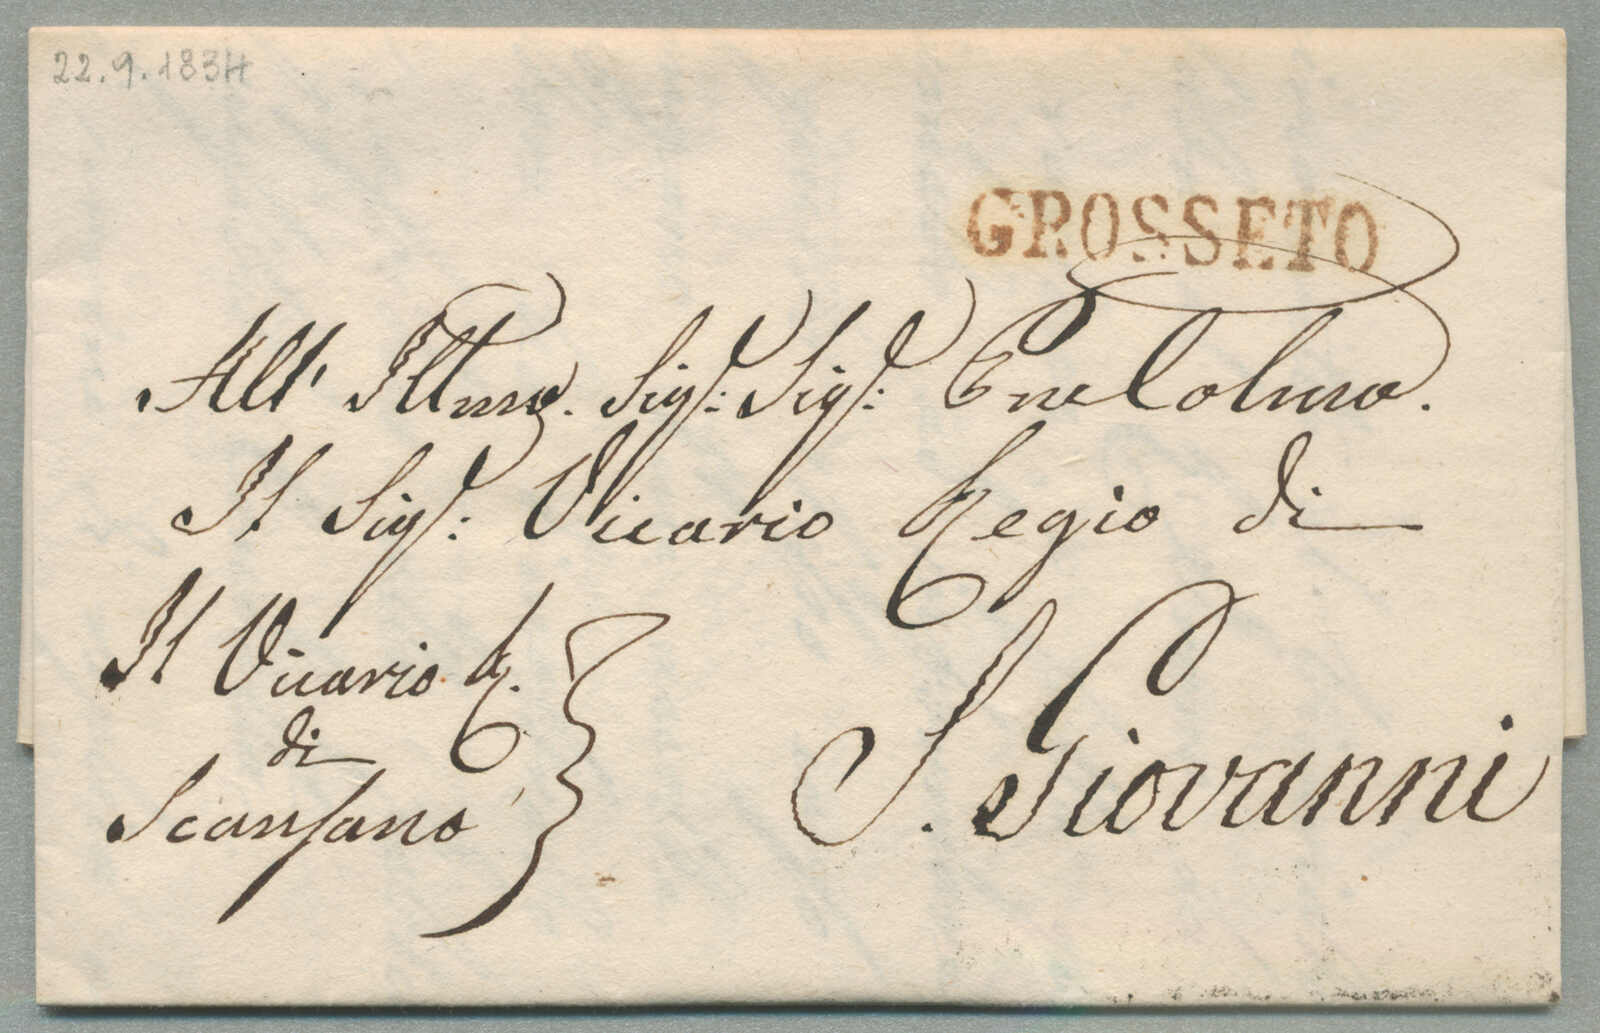 22.9.1834
GROSSETO
All' Illmo. Sigr: Sigr: Pne Colmo.
Il Sigr: Vicario Regio di
S. Giovanni
Il Vicario R.
di
Scansano